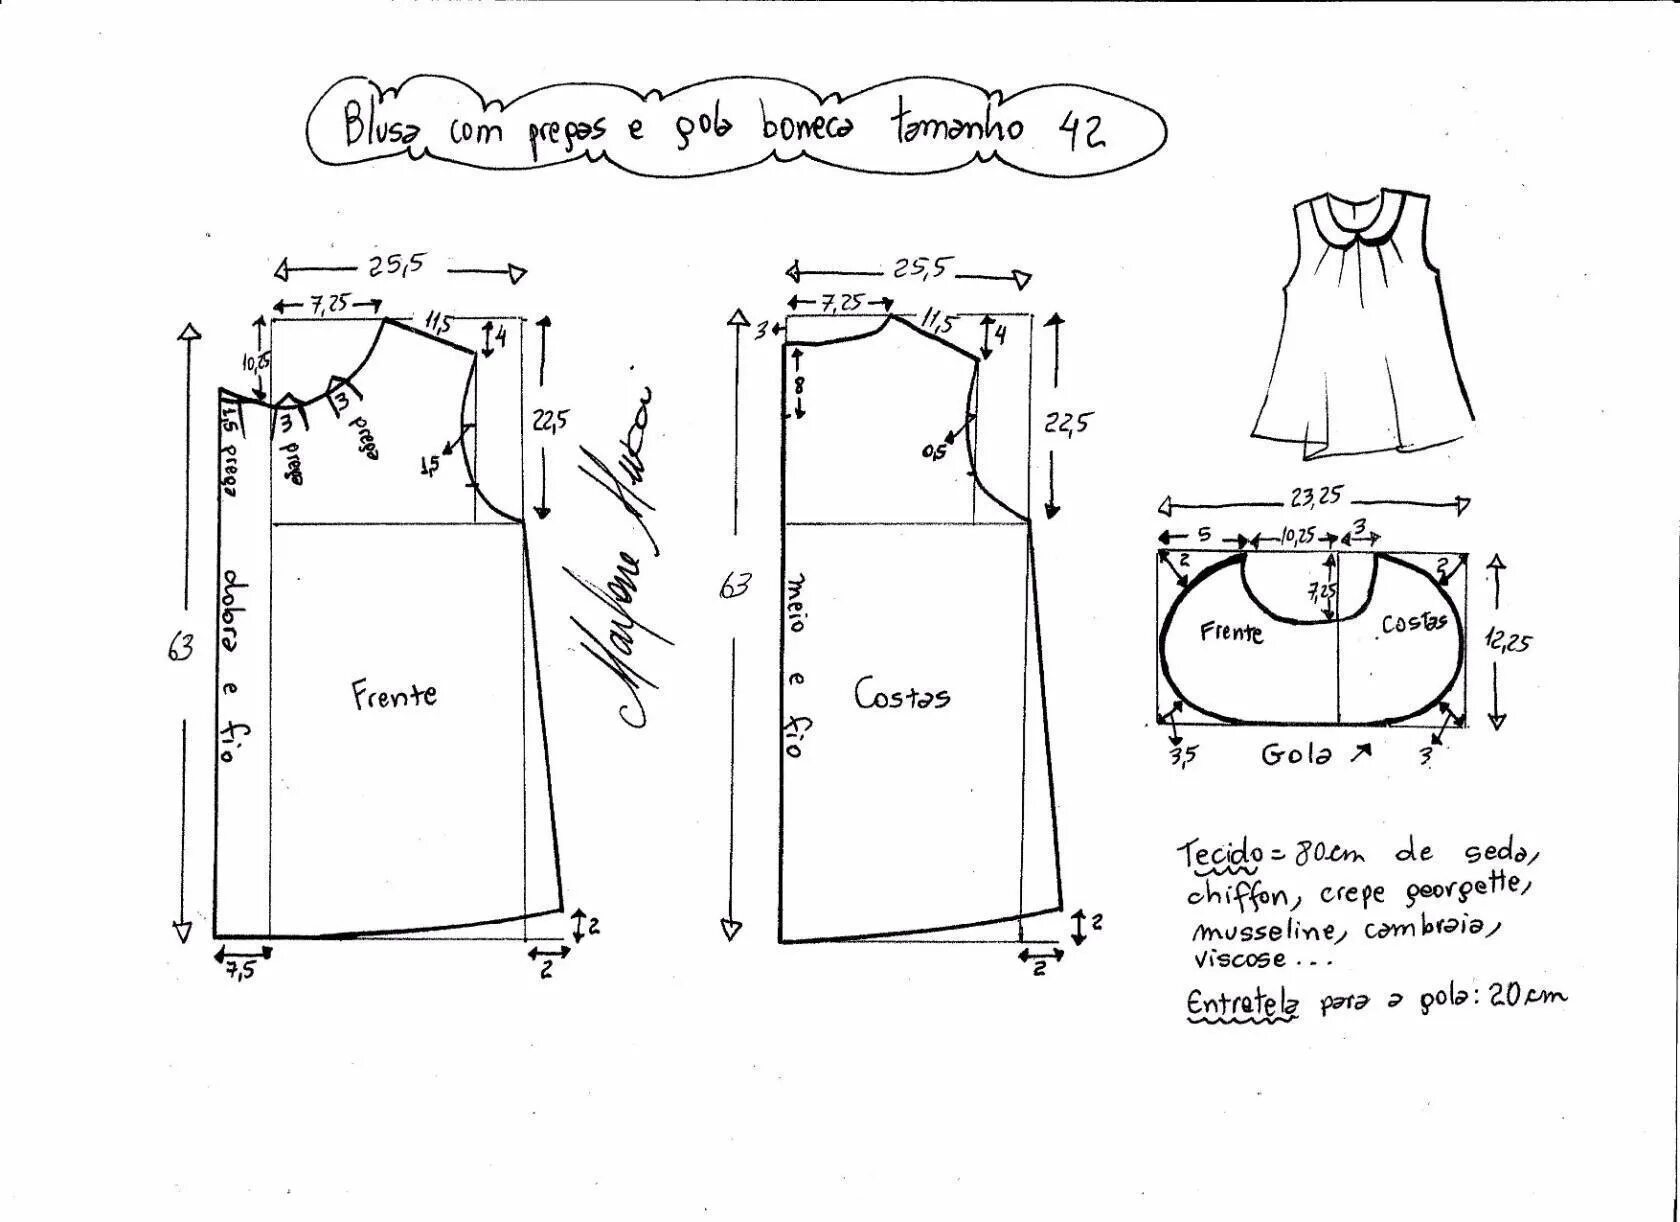 Blusa com pregas e gola boneca tamanho 42
25,5
7,25
11,5
4
10,25
3
prega
3
prega
1,5 prega
dobra e fio
1,5
22,5
63
Frente
7,5
2
2
Marlene Mukai
25,5
7,25
3
11,5
4
8
0,5
22,5
63
meio e fio
Costas
2
2
23,25
5
10,25
3
2
2
7,25
Frente
Costas
12,25
3,5
3
Gola
Tecido = 80cm de seda,
chiffon, crepe georgette,
musseline, cambraia,
viscose...
Entretela para a gola: 20cm